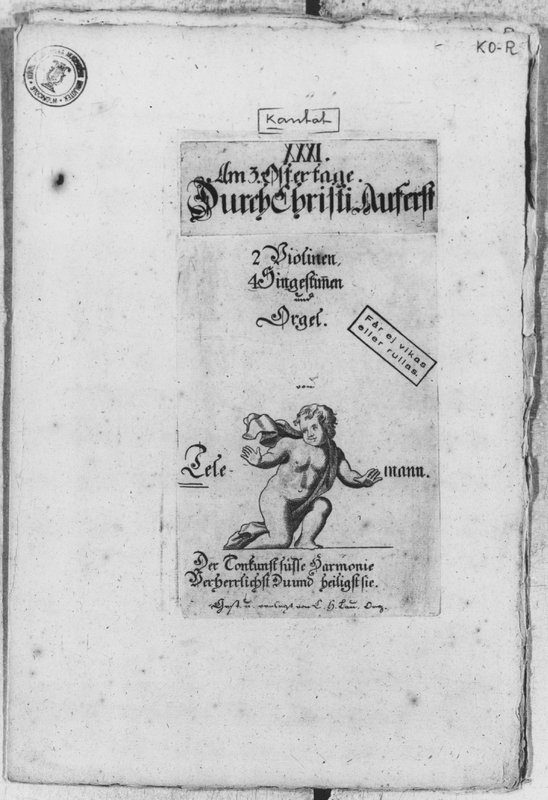 KO-R
Kantat
XXXI.
Am 3. Ostertage.
Durch Christi Auferst
2 Violinen,
4 Singestim̅en
und
Orgel.
Får ej vikas
eller rullas.
von
Tele-
mann.
Der Tonkunst süsse Harmonie
Verherrlichst Du und heiligst sie.
u. verlegt von C. H. Lau. Org.